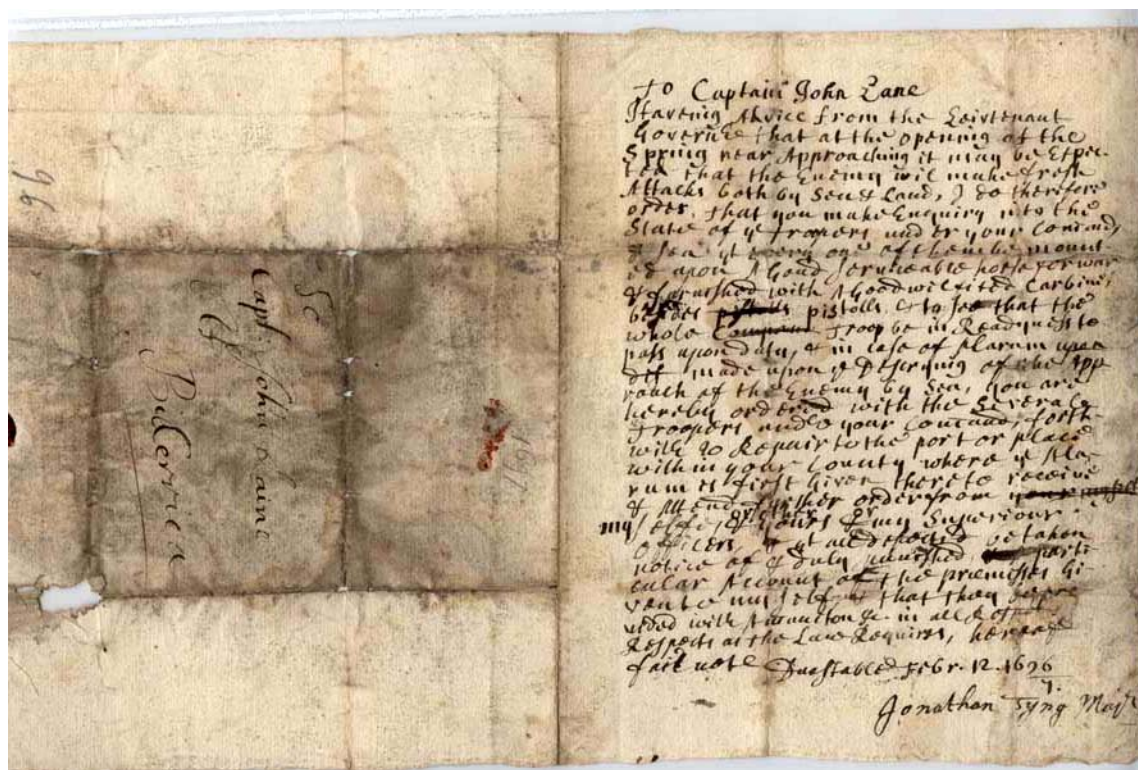 To Captain John Lane
Haveing Advice from the Leivtenant
Govern^r that at the opening of the
Spring near Approaching it may be Expec-
ted that the Enemy wil make fresh
Attacks both by Sea & Land, I do therefore
order, that you make Enquiry into the
State of y^e Troopers under your Comand,
& sea y^t every one of them be mount-
ed upon A Good serviceable horse for war
& furnished with A Good wel fixed Carbine,
besides pistolls pistolls & to see that the
whole Company Troop be in Readyness to
pass upon duty, & in case of Alarum
made upon y^e Descrying of the App
roach of the Enemy by Sea, you are
hereby ordered with the Severall
Troopers under your Comand, forth-
with to Repair to the port or place
within your County where y^e Ala-
rum is first Given thereto receive
& Attend further order from
my selfe, or other yours & my Superiour
officers, & y^t all defects be taken
notice of & duly punished parti-
cular Account of the premisses Gi-
ven to my self & that they be pro
vided with Amunition &c in all
Respects as the Law Requires, hereof
fail not Dunstable Febr. 12. 1696
7.
Jonathan Tyng Maj^r
96
To
Capt. John Laine
Of
Bilerrica
1697